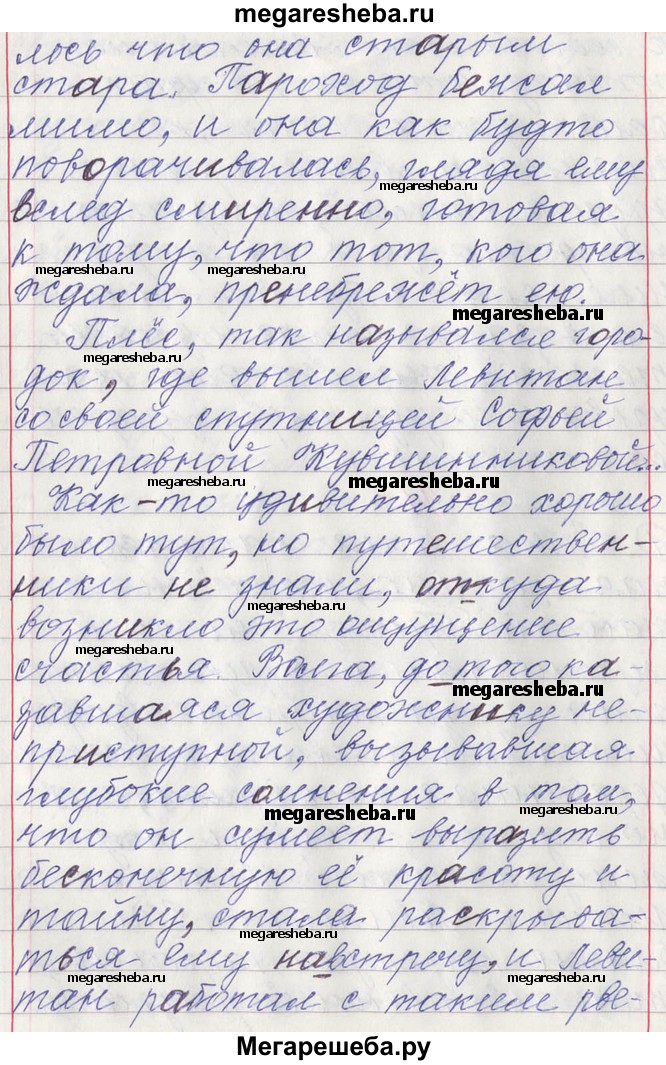 megaresheba.ru
лось что она старым
стара. Пароход бежал
мимо, и она как будто
поворачивалась, глядя ему
megaresheba.ru
вслед смиренно, готовая
к тому, что тот, кого она
megaresheba.ru megaresheba.ru
ждала, пренебрежёт ею.
megaresheba.ru
Плёс, так назывался горо-
megaresheba.ru
док, где вышел Левитан
со своей спутницей Софьей
Петровной Кувшинниковой...
megaresheba.ru
Как-то удивительно хорошо
было тут, но путешествен-
ники не знали, откуда
megaresheba.ru
возникло это ощущение
megaresheba.ru
счастья. Волга, до того ка-
megaresheba.ru
завшаяся художнику не-
приступной, вызывавшая
глубокие сомнения в том,
megaresheba.ru megaresheba.ru
что он сумеет выразить
бесконечную её красоту и
тайну, стала раскрыва-
megaresheba.ru
ться ему навстречу, и Леви-
megaresheba.ru megaresheba.ru
тан работал с таким рве-
Мегарешеба.ру